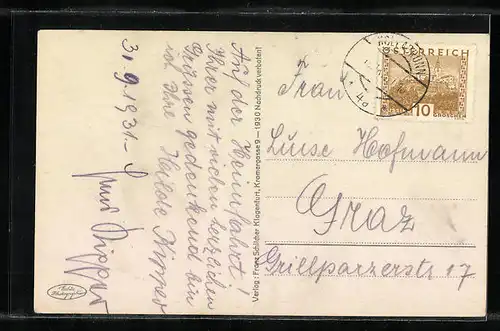 3.9.1931.
Auf der Heimfahrt!
Ihrer mit vielen herzlichen
Grüssen gedenkend bin
ich Ihre Hilde Ripper
Ripper
Verlag: Franz Schilcher Klagenfurt, Kramergasse 9 — 1930 Nachdruck verboten!
ÖSTERREICH
10
GROSCHEN
Frau
Luise Hofmann
Graz
Grillparzerstr 17
Echte
Photographie